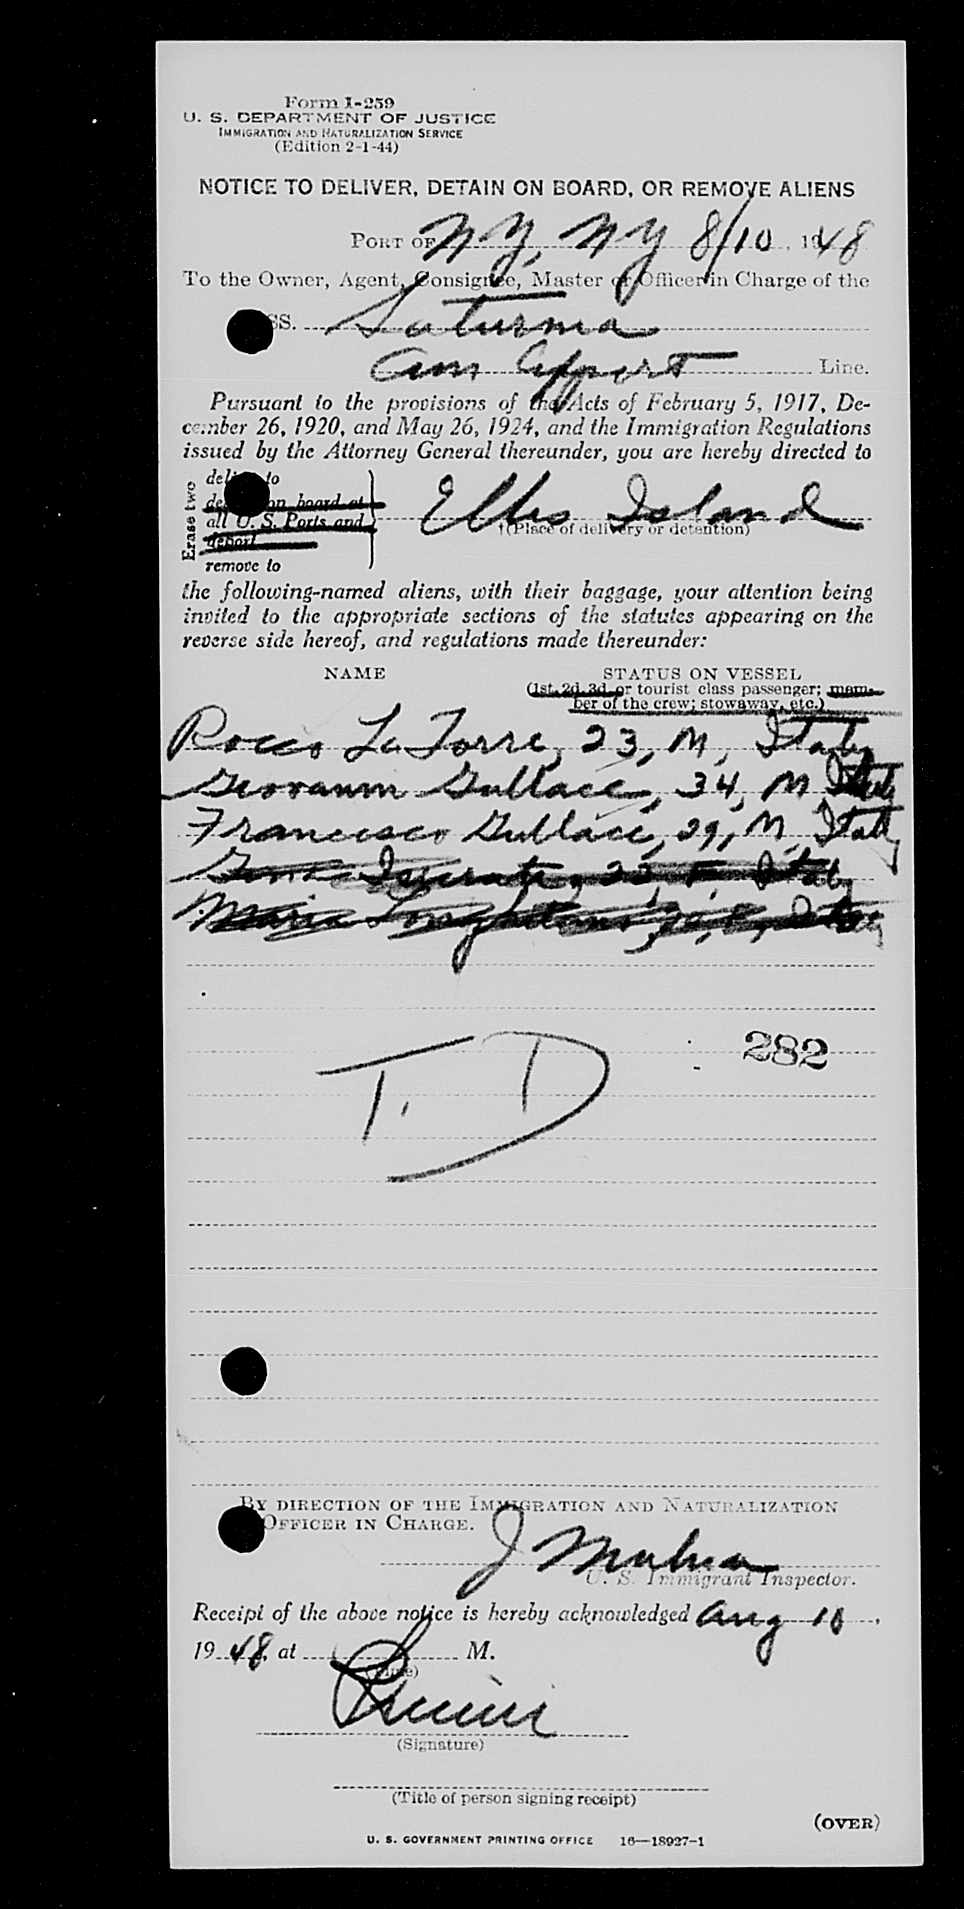 Form I-259
U. S. DEPARTMENT OF JUSTICE
IMMIGRATION AND NATURALIZATION SERVICE
(Edition 2-1-44)
NOTICE TO DELIVER, DETAIN ON BOARD, OR REMOVE ALIENS
PORT OF N Y, N Y 8/10, 1948
To the Owner, Agent, Consignee, Master or Officer in Charge of the
SS. Saturnia
Am Export Line.
Pursuant to the provisions of the Acts of February 5, 1917, De-
cember 26, 1920, and May 26, 1924, and the Immigration Regulations
issued by the Attorney General thereunder, you are hereby directed to
Erase two
deliver to
on board at
all U. S. Ports and
deport
remove to
Ellis Island
†(Place of delivery or detention)
the following-named aliens, with their baggage, your attention being
invited to the appropriate sections of the statutes appearing on the
reverse side hereof, and regulations made thereunder:
NAME STATUS ON VESSEL
(1st, 2d, 3d, or tourist class passenger; mem-
ber of the crew; stowaway, etc.)
Rocco La Torre, 23, M, Italy
Giovanni Gullace, 34, M Italy
Francesco Gullace, 29, M, Italy
F, Italy
Maria
282
T. D
BY DIRECTION OF THE IMMIGRATION AND NATURALIZATION
OFFICER IN CHARGE.
J
U. S. Immigrant Inspector.
Receipt of the above notice is hereby acknowledged Aug 10,
1948, at M.
(Time)
(Signature)
(Title of person signing receipt)
(OVER)
U. S. GOVERNMENT PRINTING OFFICE 16—18927-1